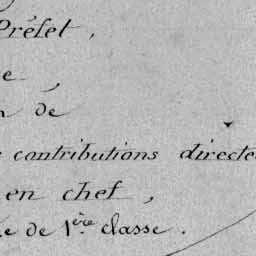 Préfet,
e,
n de
contributions directe
en chef,
e de 1ère classe.